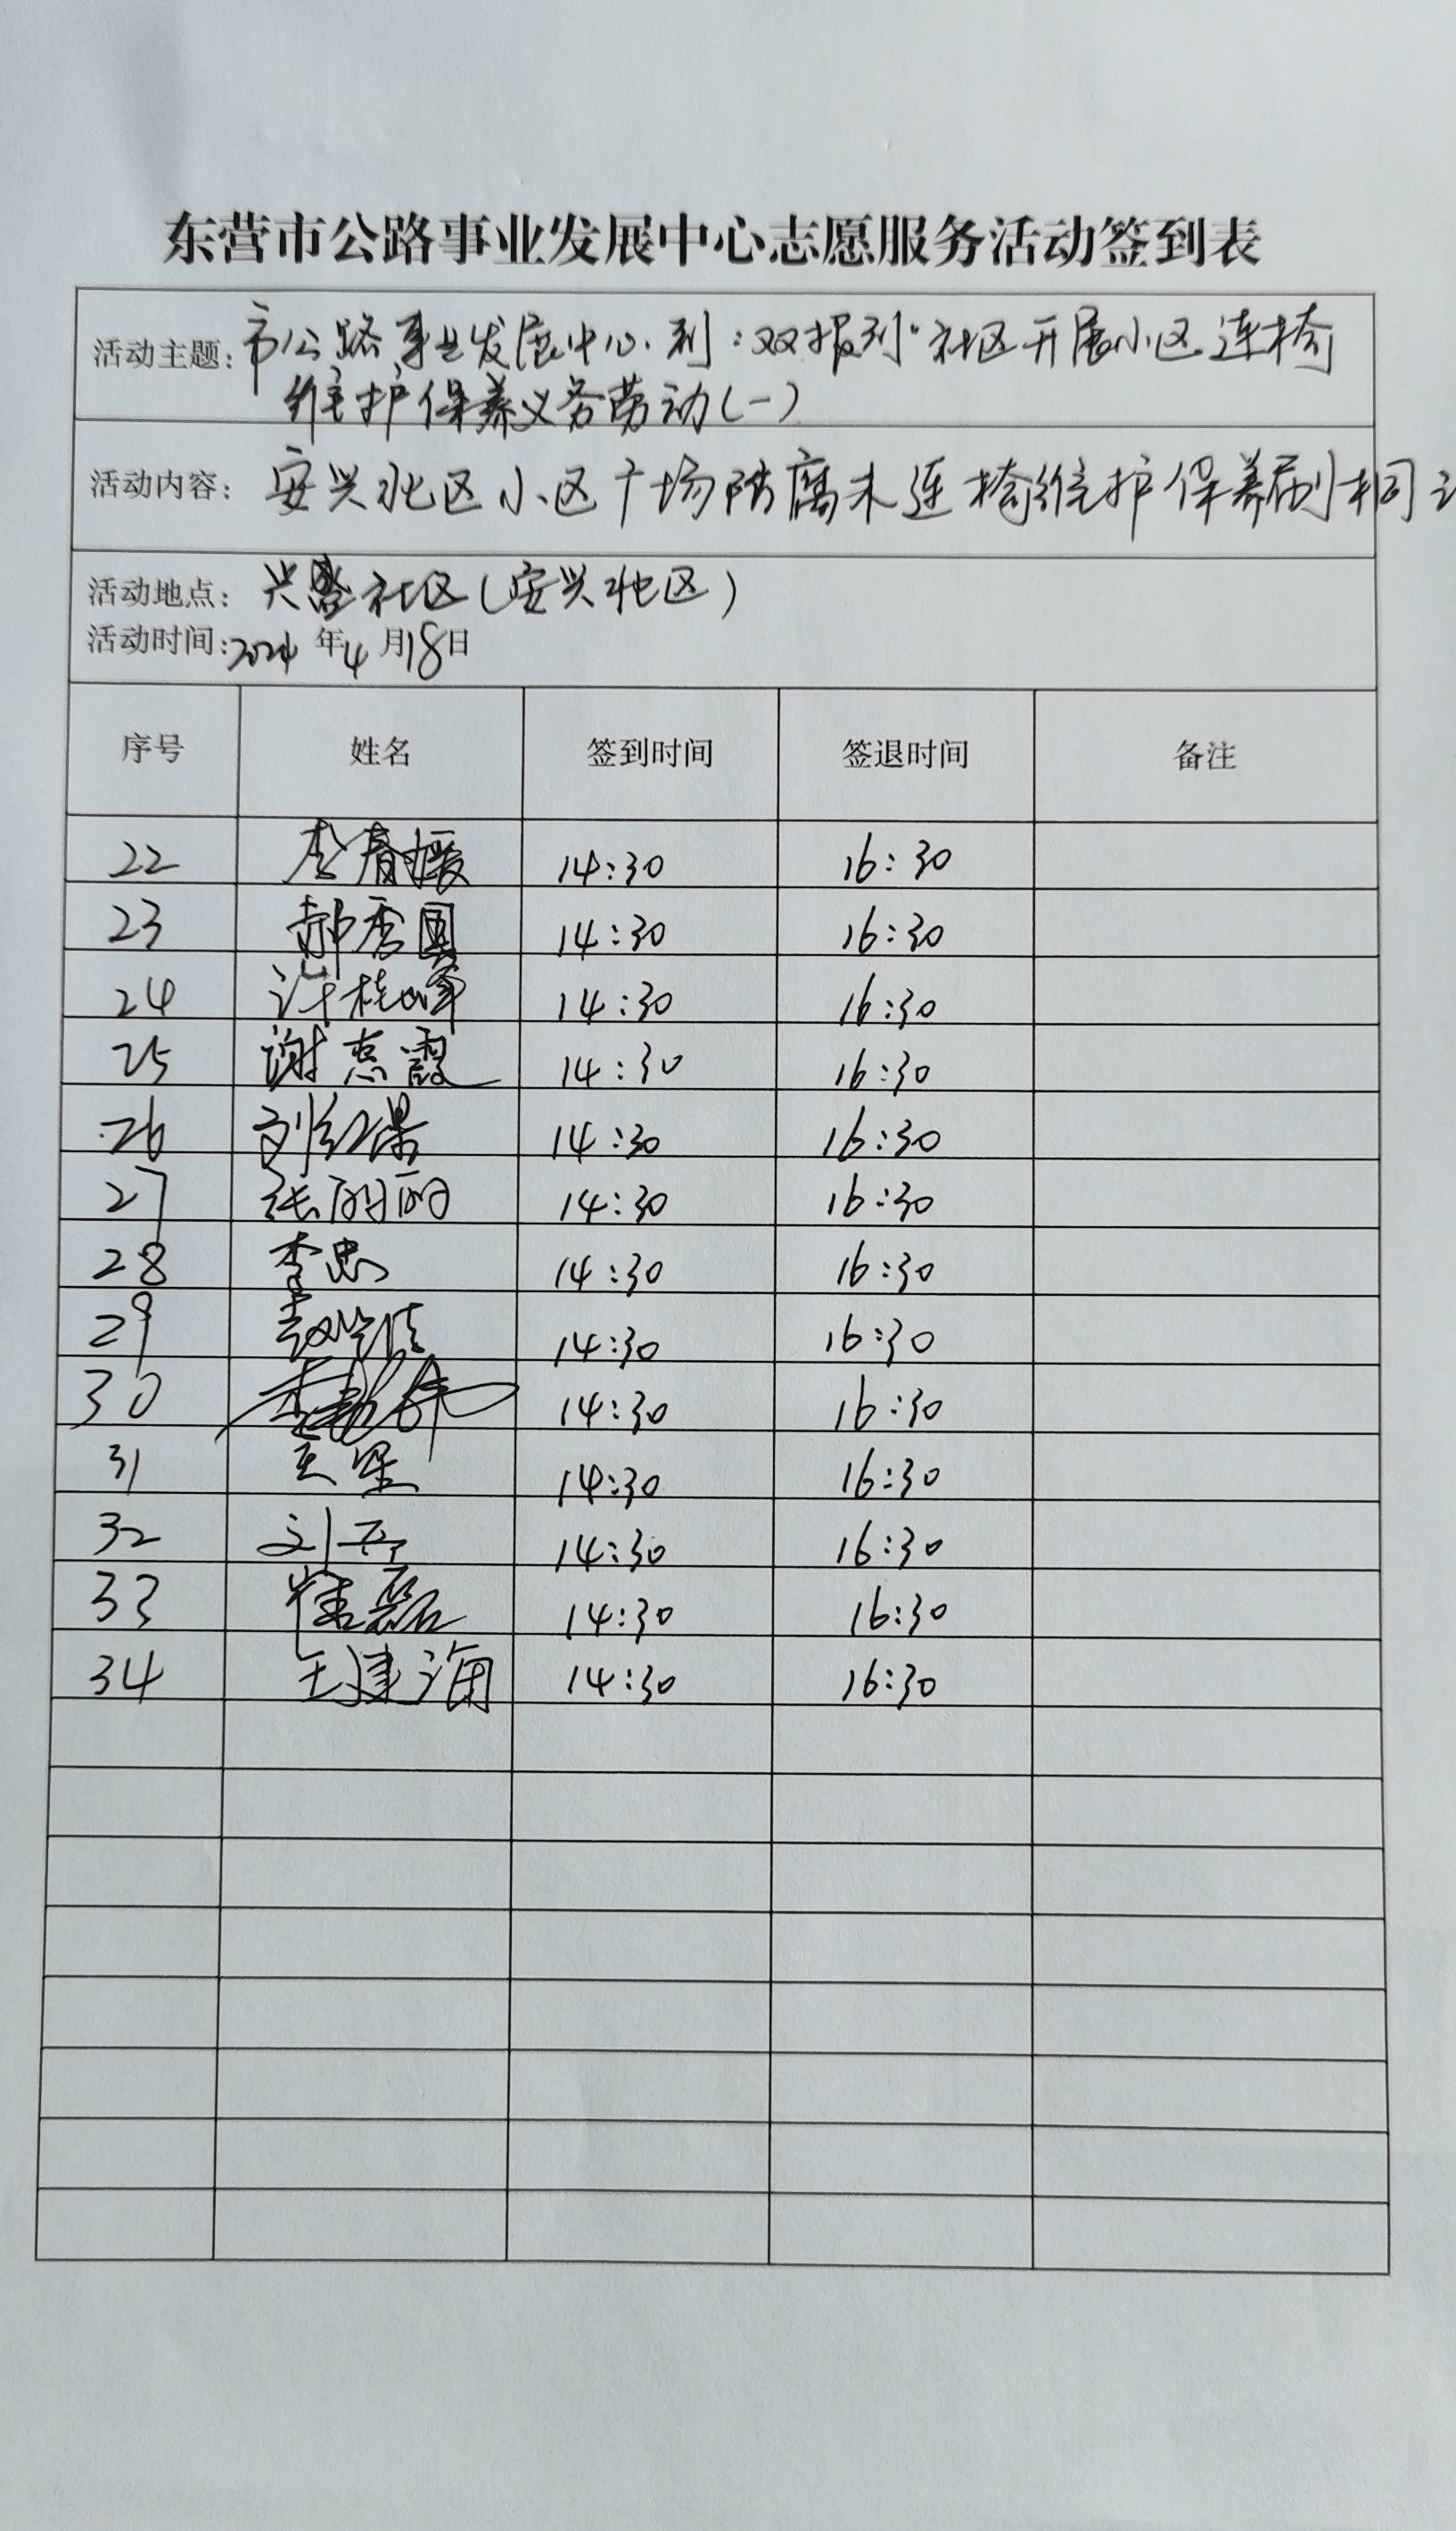 东营市公路事业发展中心志愿服务活动签到表
活动主题: 市公路事业发展中心到"双报到"社区开展小区连椅
维护保养义务劳动(一)
活动内容: 安兴北区小区广场防腐木连椅维护保养刷桐
活动地点: 兴盛社区(安兴北区)
活动时间: 2024 年 4 月 18 日
序号 姓名 签到时间 签退时间 备注
22 李春媛 14:30 16:30
23 郝秀国 14:30 16:30
24 许桂峰 14:30 16:30
25 谢惠霞 14:30 16:30
26 刘红 14:30 16:30
27 张丽丽 14:30 16:30
28 李忠 14:30 16:30
29 14:30 16:30
30 14:30 16:30
31 14:30 16:30
32 刘 14:30 16:30
33 崔磊 14:30 16:30
34 王建海 14:30 16:30